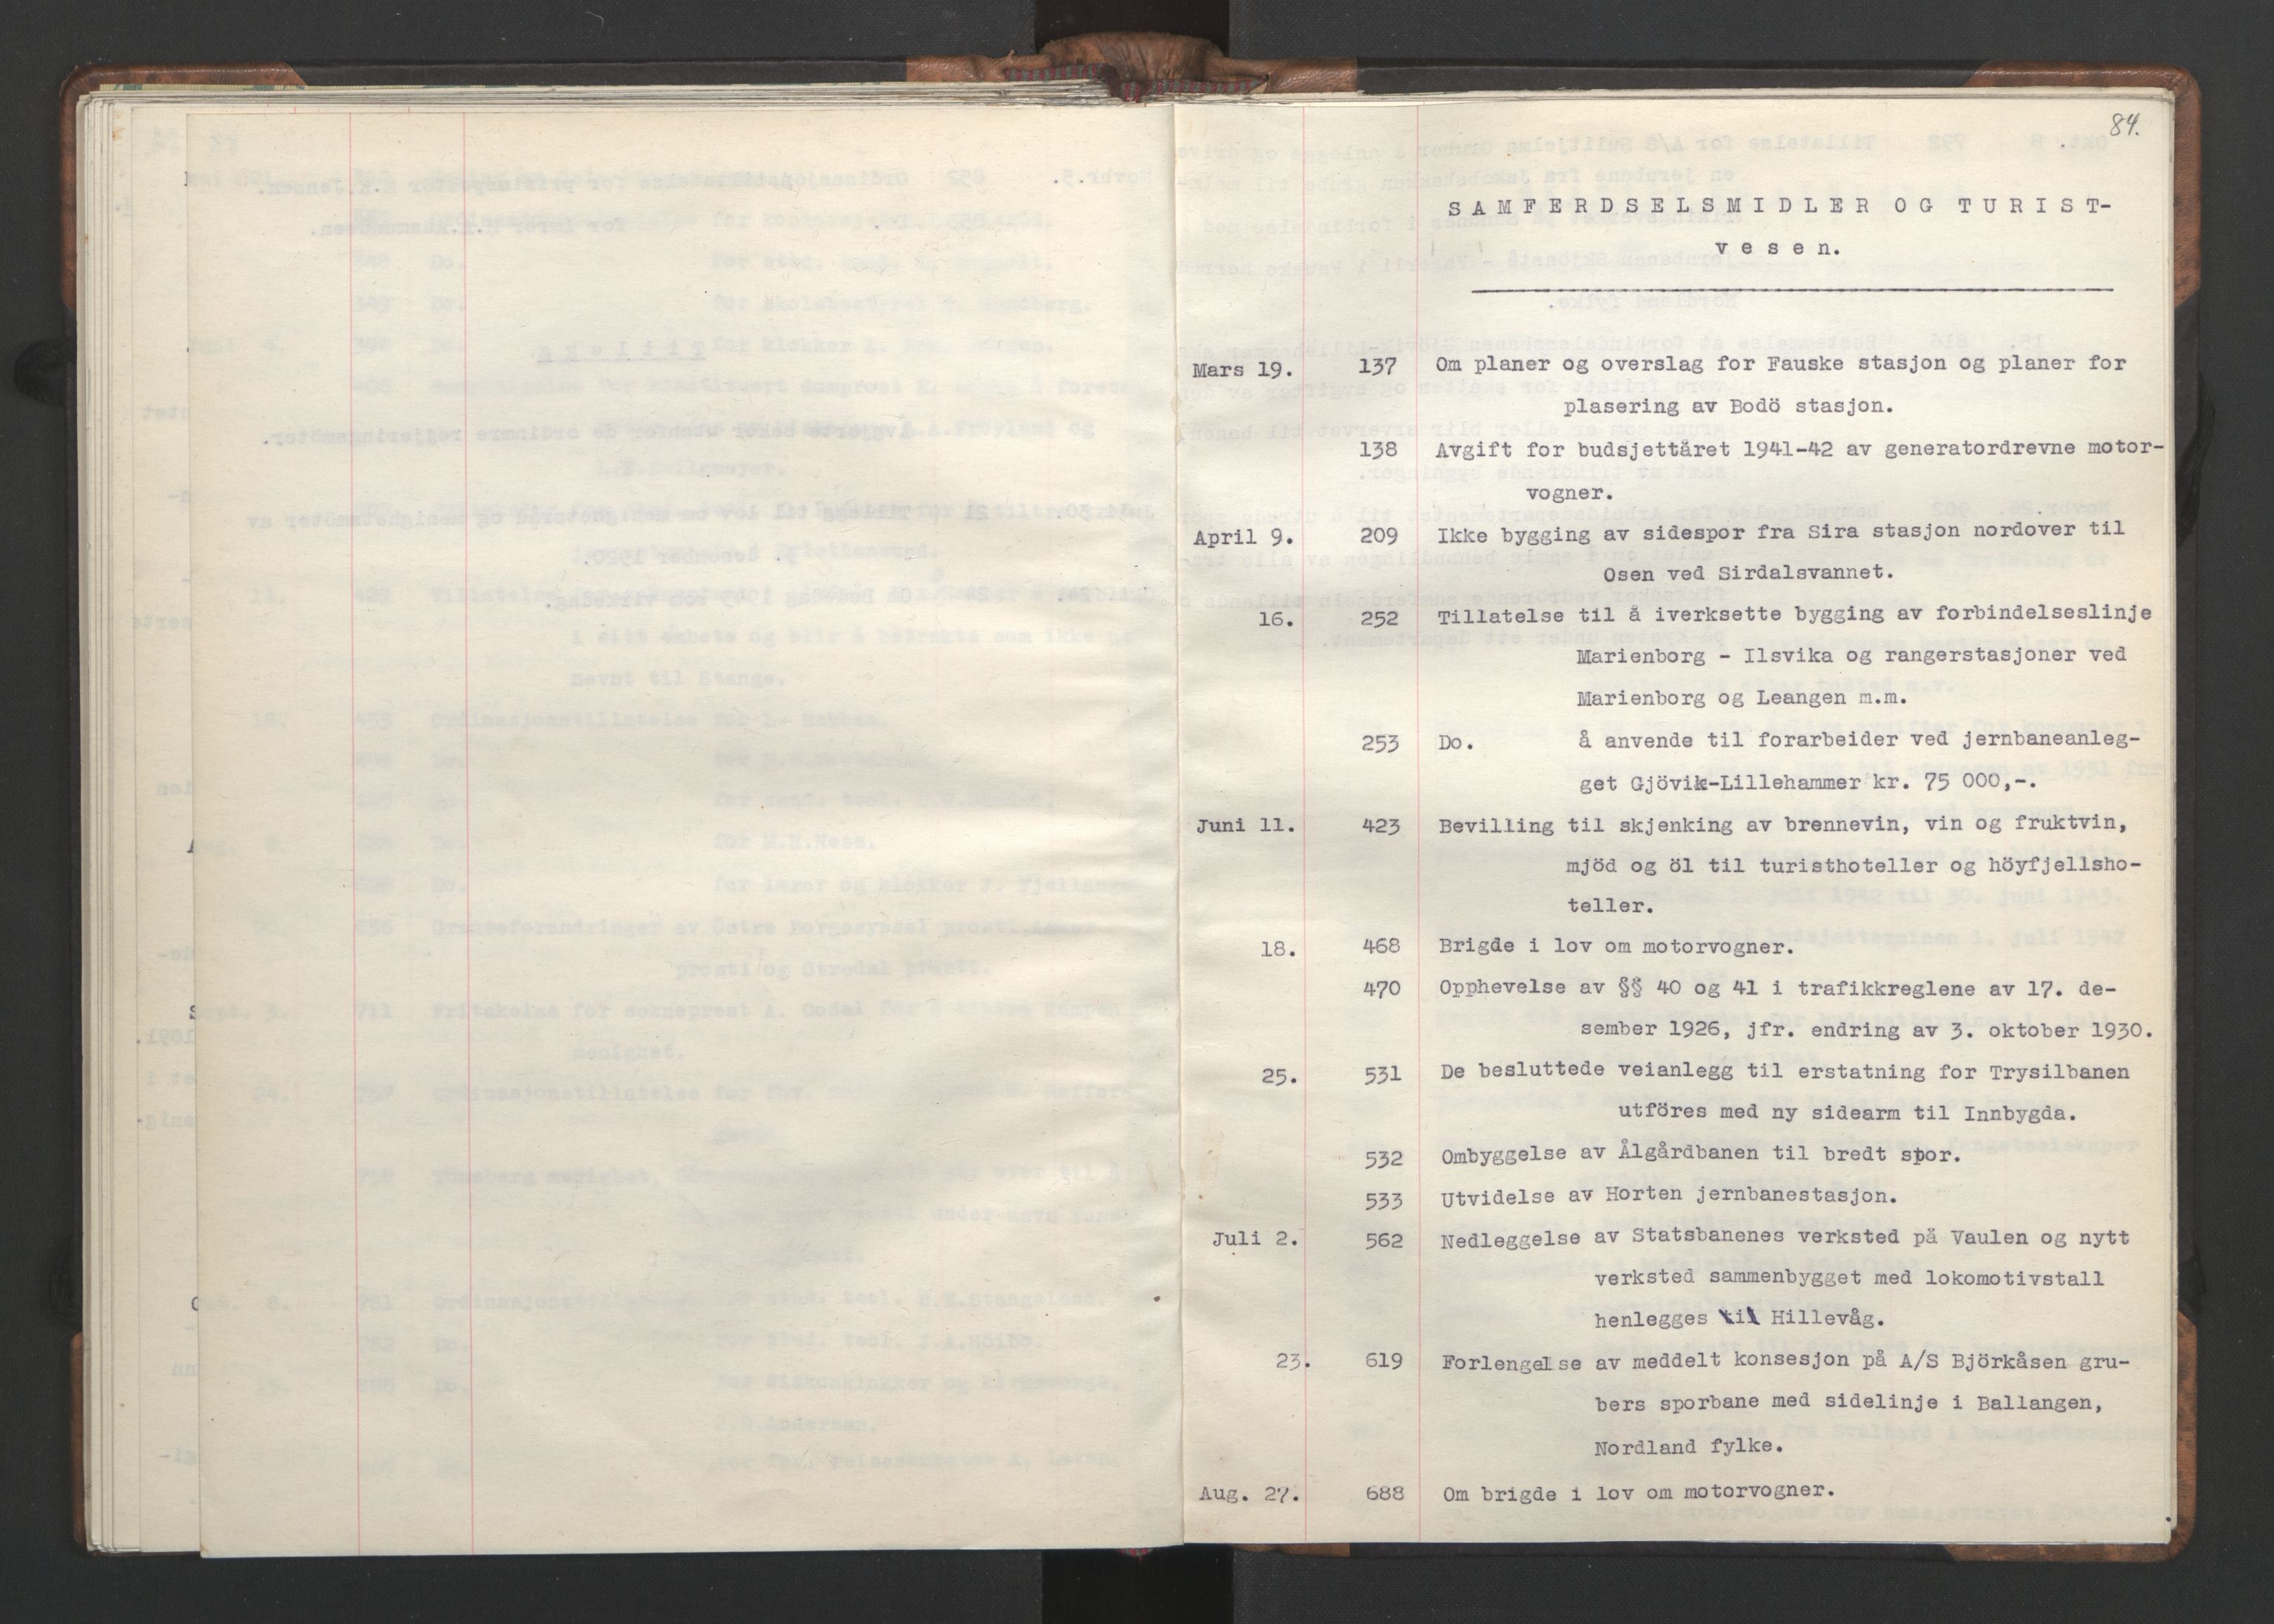 84.
S A M F E R D S E L S M I D L E R O G T U R I S T-
v e s e n.
Mars 19. 137 Om planer og overslag for Fauske stasjon og planer for
plasering av Bodö stasjon.
138 Avgift for budsjettåret 1941-42 av generatordrevne motor-
vogner.
April 9. 209 Ikke bygging av sidespor fra Sira stasjon nordover til
Osen ved Sirdalsvannet.
16. 252 Tillatelse til å iverksette bygging av forbindelseslinje
Marienborg - Ilsvika og rangerstasjoner ved
Marienborg og Leangen m.m.
253 Do. å anvende til forarbeider ved jernbaneanleg-
get Gjövik-Lillehammer kr. 75 000,-.
Juni 11. 423 Bevilling til skjenking av brennevin, vin og fruktvin,
mjöd og öl til turisthoteller og höyfjellsho-
teller.
18. 468 Brigde i lov om motorvogner.
470 Opphevelse av §§ 40 og 41 i trafikkreglene av 17. de-
sember 1926, jfr. endring av 3. oktober 1930.
25. 531 De besluttede veianlegg til erstatning for Trysilbanen
utföres med ny sidearm til Innbygda.
532 Ombyggelse av Ålgårdbanen til bredt spor.
533 Utvidelse av Horten jernbanestasjon.
Juli 2. 562 Nedleggelse av Statsbanenes verksted på Vaulen og nytt
verksted sammenbygget med lokomotivstall
henlegges til Hillevåg.
23. 619 Forlengelse av meddelt konsesjon på A/S Björkåsen gru-
bers sporbane med sidelinje i Ballangen,
Nordland fylke.
Aug. 27. 688 Om brigde i lov om motorvogner.